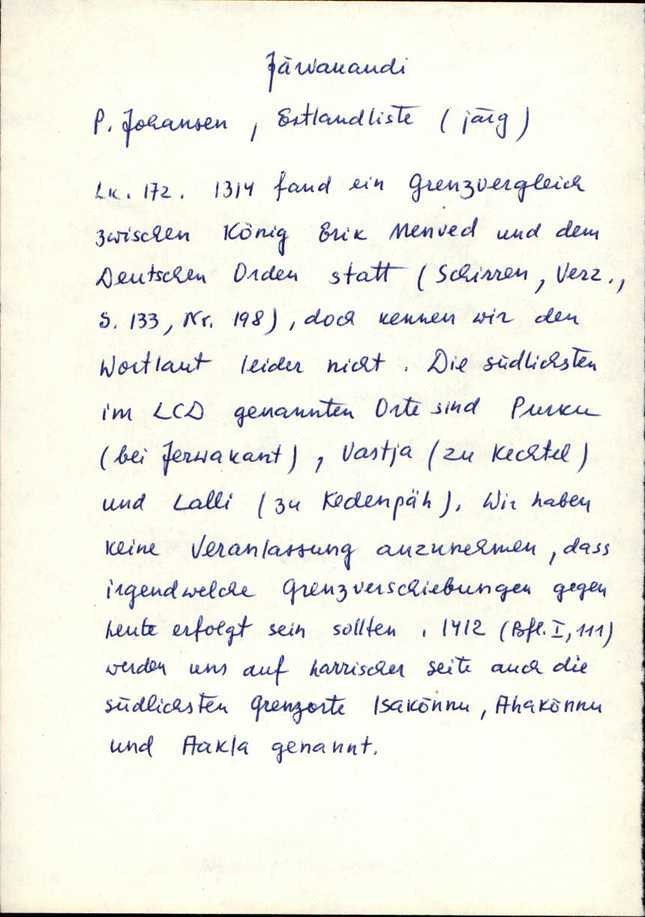 Järwanandi
P. Johansen, Estlandliste (järg)
Lk. 172. 1314 fand ein Grenzvergleich
zwischen König Erik Menved und dem
Deutschen Orden statt (Schirren, Verz.,
S. 133, Nr. 198), doch kennen wir den
Wortlaut leider nicht. Die südlichsten
im LCD genannten Orte sind Purku
(bei Jerwakant), Vastja (zu Kechtel)
und Lalli (zu Kedenpäh). Wir haben
keine Veranlassung anzunehmen, dass
irgendwelche Grenzverschiebungen gegen
heute erfolgt sein sollten. 1412 (Bfl. I, 111)
werden uns auf harrischer Seite auch die
südlichsten Grenzorte Isakönnu, Ahakönnu
und Aakla genannt.